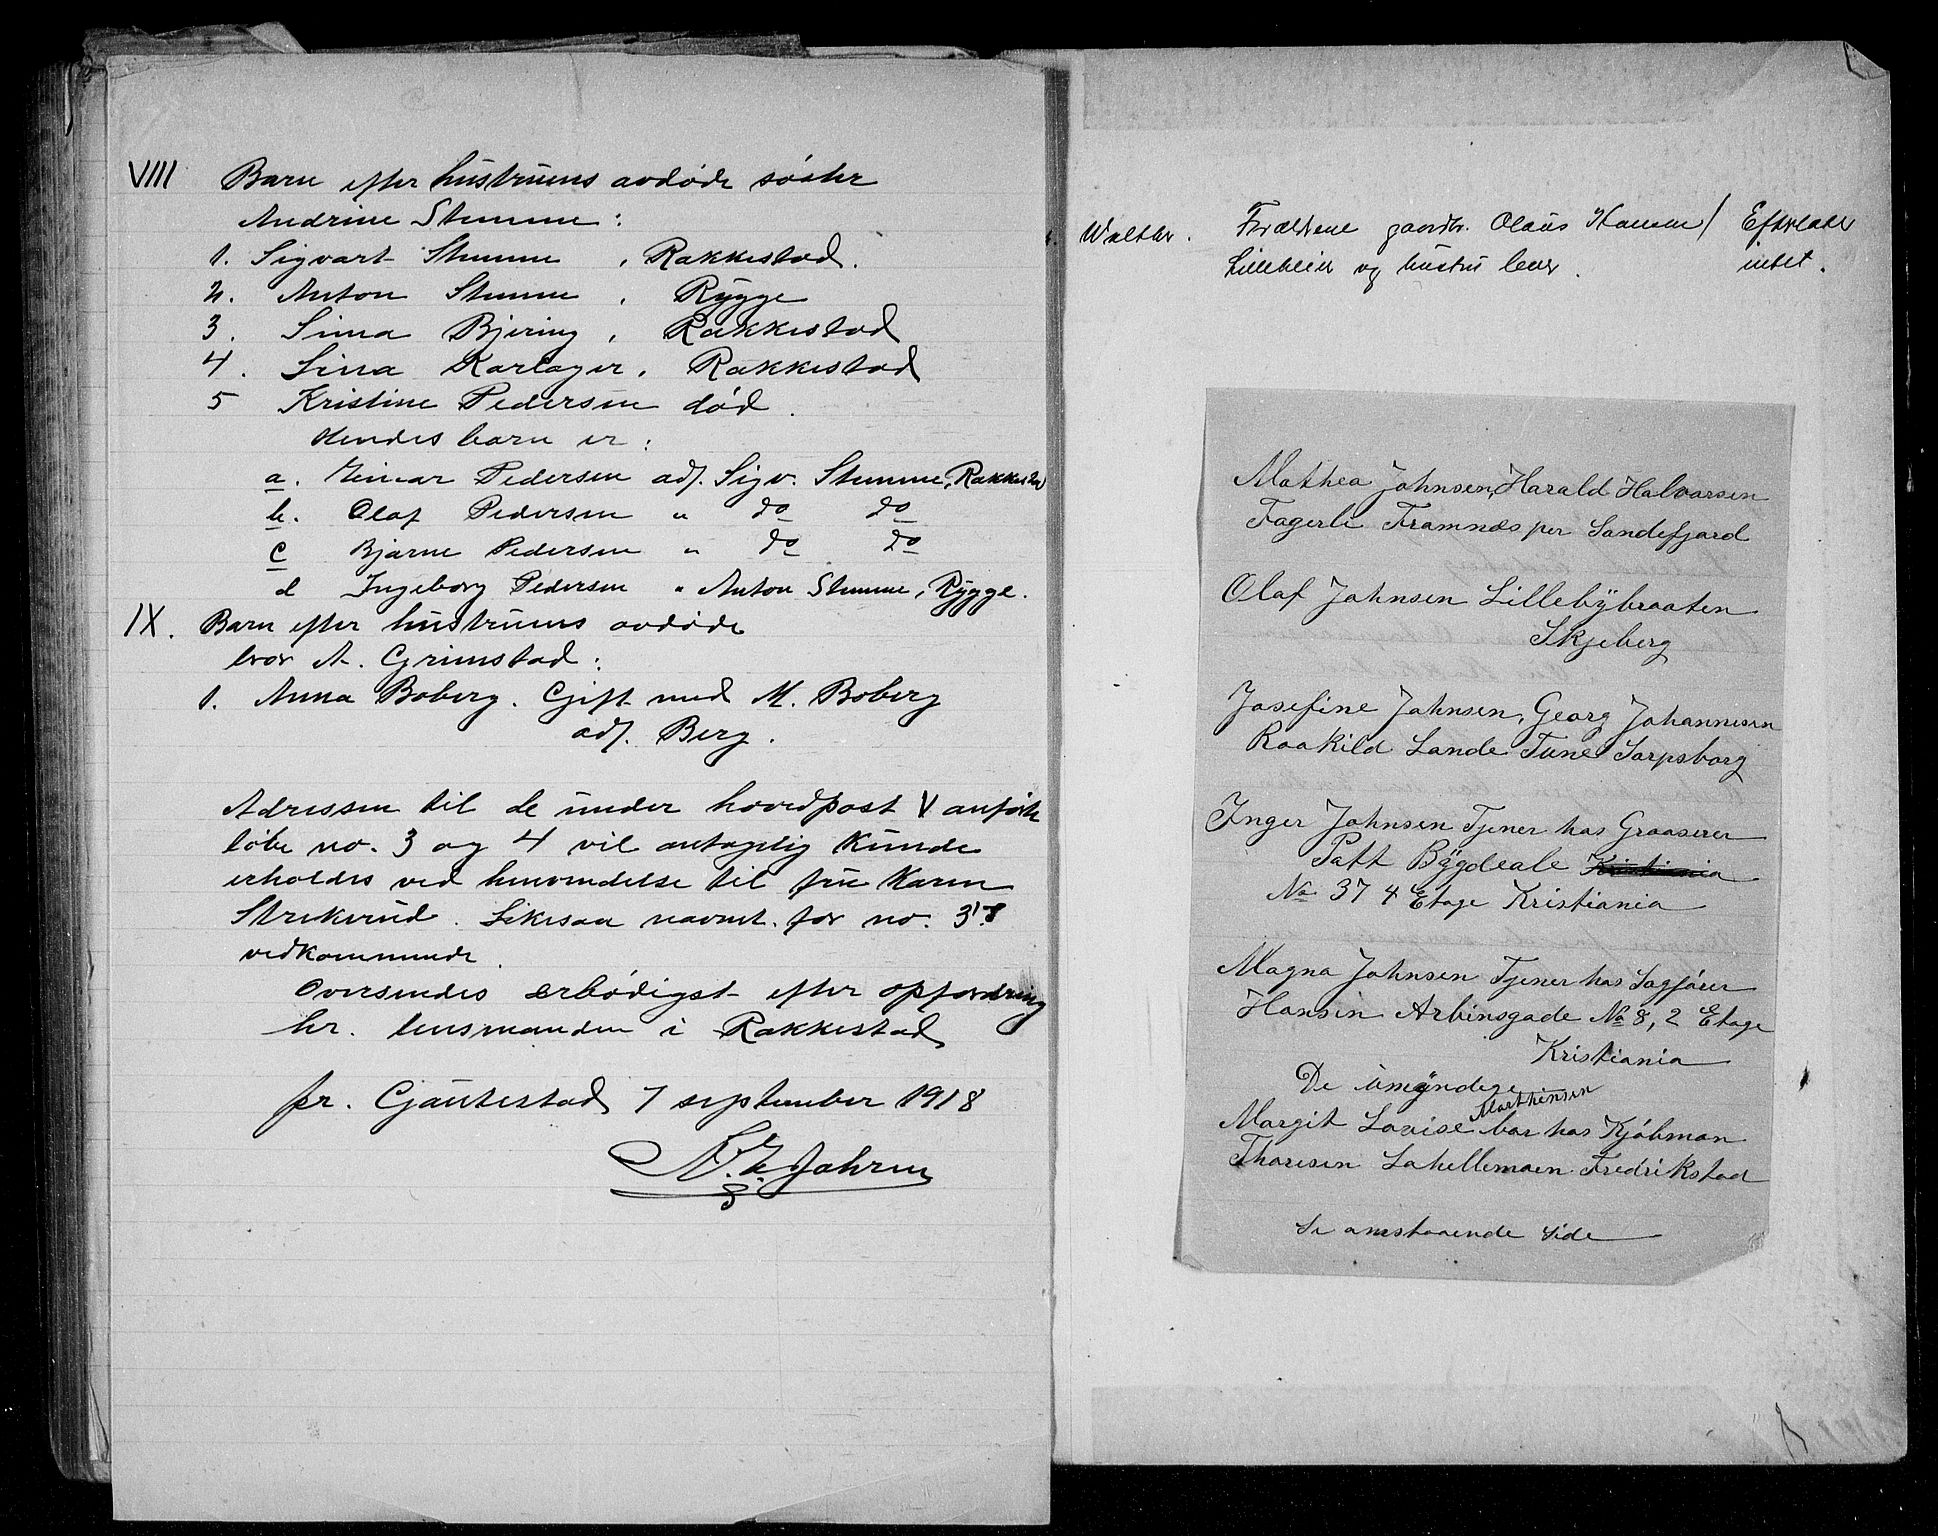 VIII Barn efter hustruens avdøde søster
Andrine Stumme:
1. Sigvart Stumme, Rakkestad.
2. Anton Stumme, Rygge
3. Sina Bjering, Rakkestad
4. Lina Karlager, Rakkestad
5 Kristine Pedersen død.
Hendes barn er:
a. Einar Pedersen adr. Sigv. Stumme, Rakkestad
b. Olaf Pedersen " do do
c Bjarne Pedersen " do do
d Ingeborg Pedersen " Anton Stumme, Rygge.
IX. Barn efter hustruens avdøde
bror A. Grimstad:
1. Anna Boberg. Gift med M. Boberg
adr. Berg.
Adressen til de under hovedpost V anførte
løbe no. 3 og 4 vil antagelig kunde
erholdes ved henvendelse til frue Karen
Strekerud. Likesaa navnt. for no. 3
vedkommende.
Oversendes ærbødigst efter opfordring
hr. lensmanden i Rakkestad
pr. Gautestad 7 september 1918
Walther. Forældrene gaardbr. Olaus Hansen Efterlater
Lilleblik og hustru lever. intet.
Mathea Johnsen, Harald Halvorsen
Fagerli Framnæs per Sandefjord
Olaf Johnsen Lillebybraaten
Skjeberg
Josefine Johnsen, Georg Johannesen
Raakild Lande Tune Sarpsborg
Inger Johnsen Tjener hos Graaserer
Patt Bygdeale Kristiania
No 37 4 Etage Kristiania
Magna Johnsen Tjener hos Sagfører
Hansen Arbinsgade No 8, 2 Etage
Kristiania
De umyndege
Marthinsen
Margit Lovise bor hos Kjøbman
Thoresen Lahellemoen Fredrikstad
Se omstaaende side